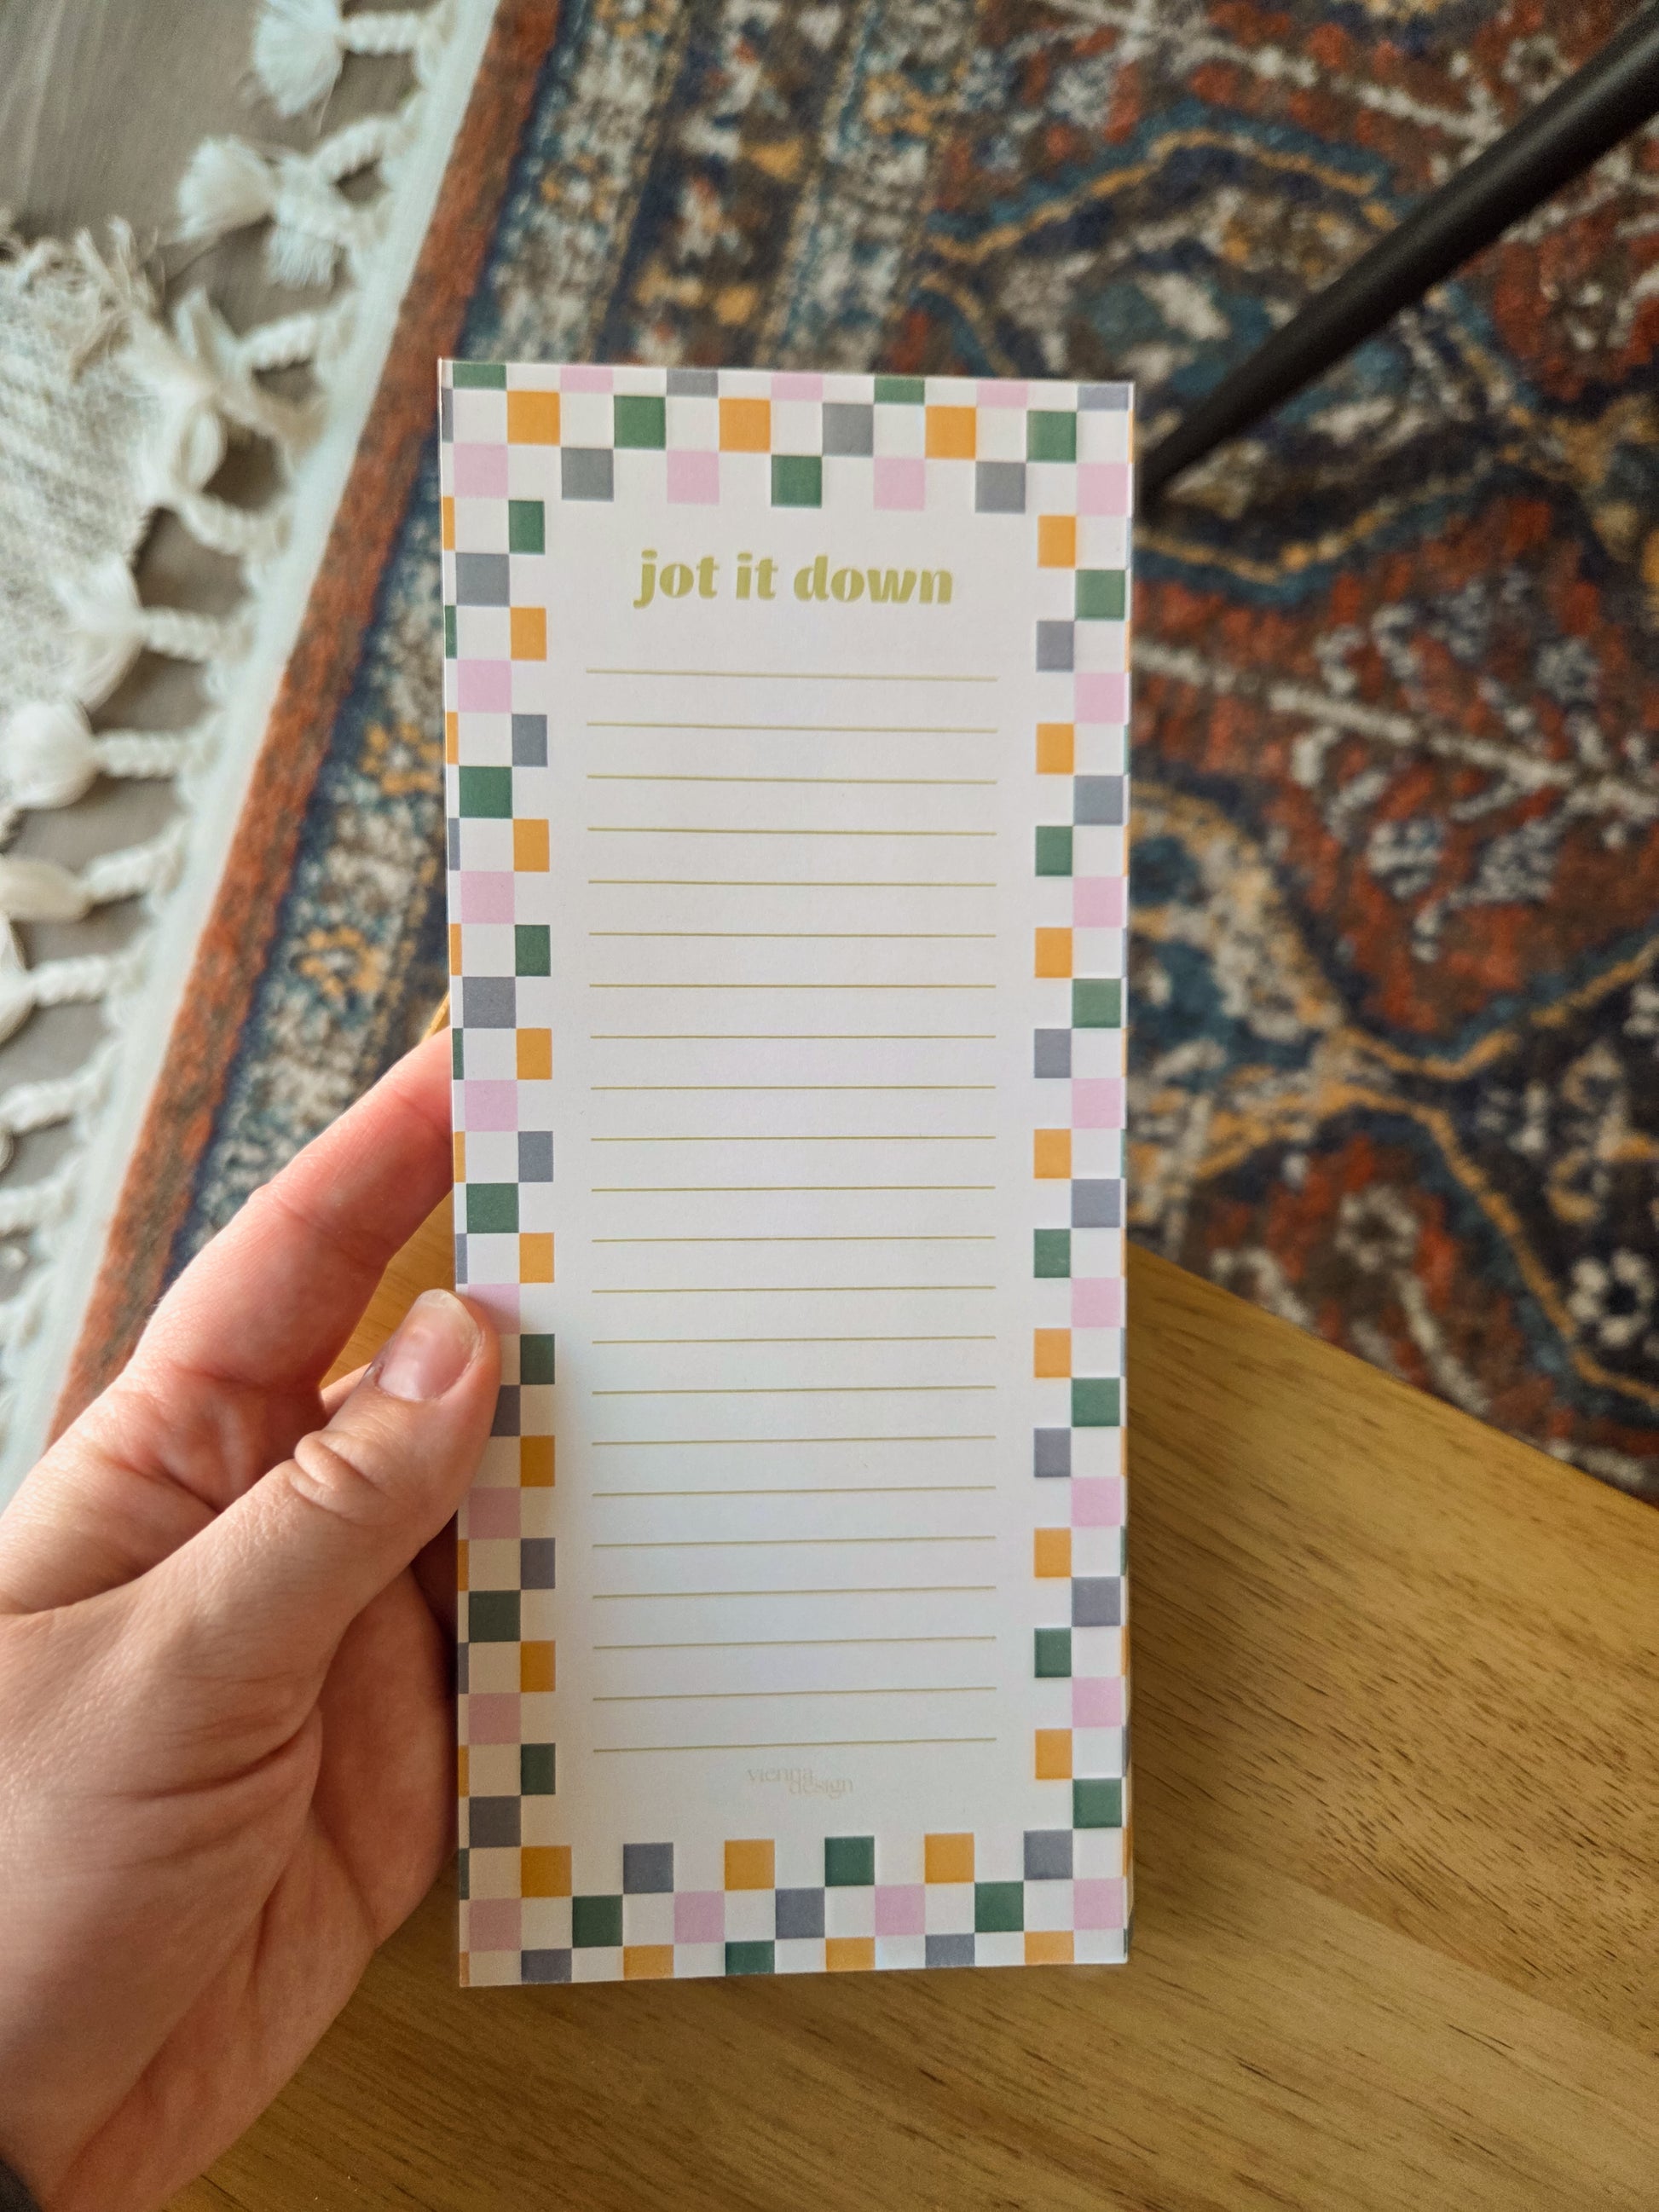 jot it down
vienna
design